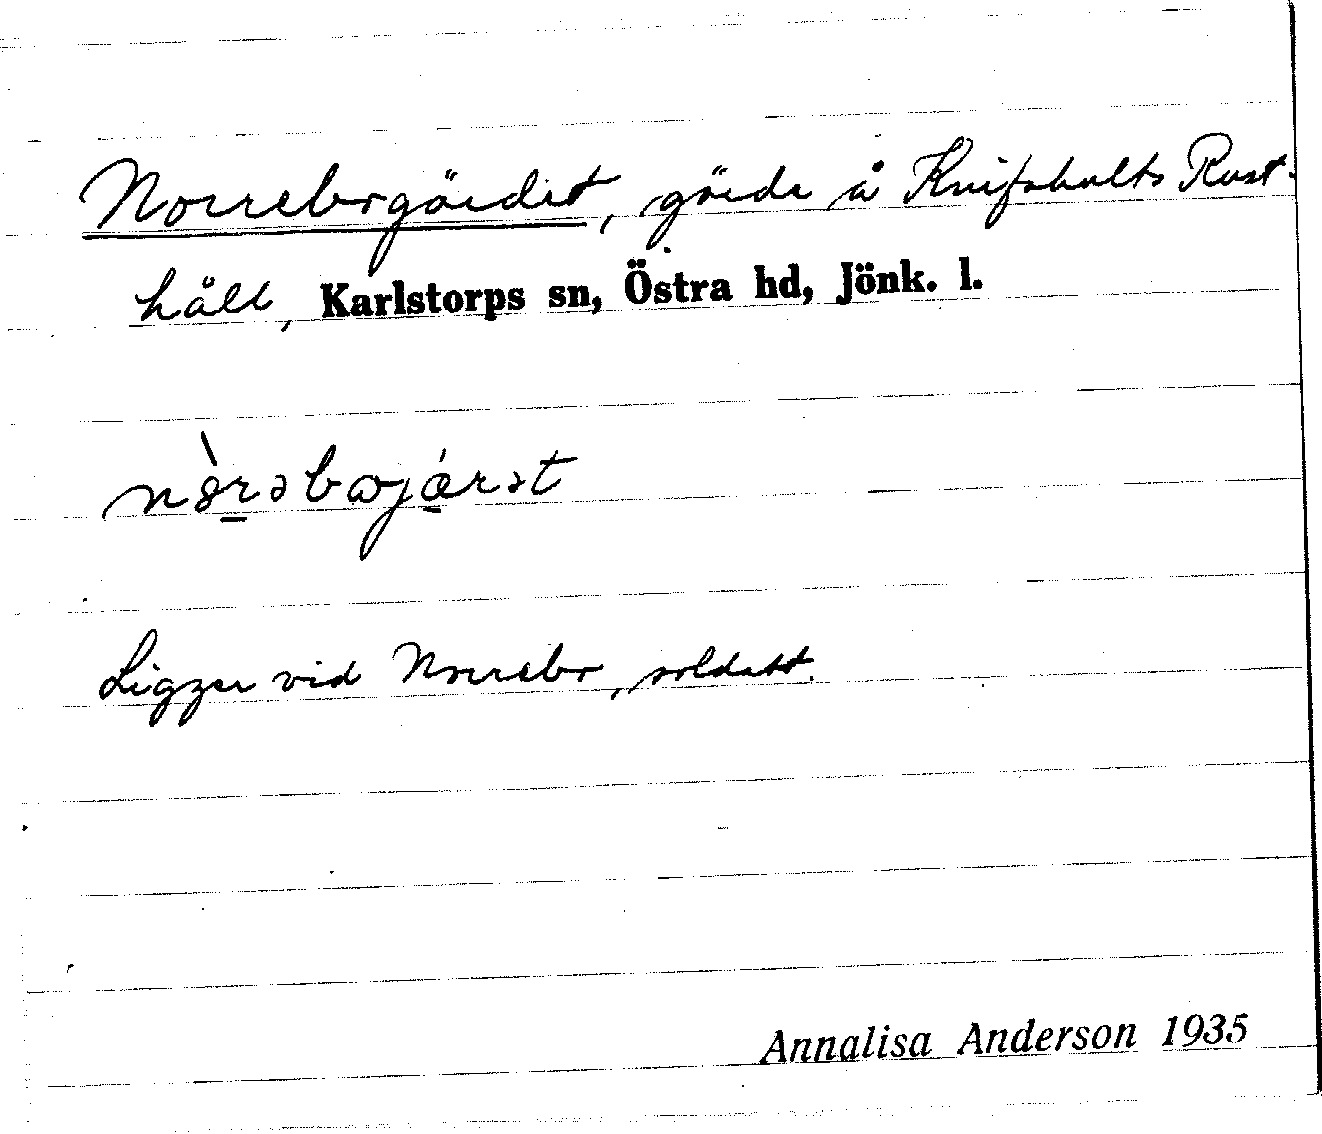 Norrebogärdet, gärde å Knifsholts Rust-
håll, Karlstorps sn, Östra hd, Jönk. l.
Ligger vid Norrebo, soldatt.
Annalisa Anderson 1935